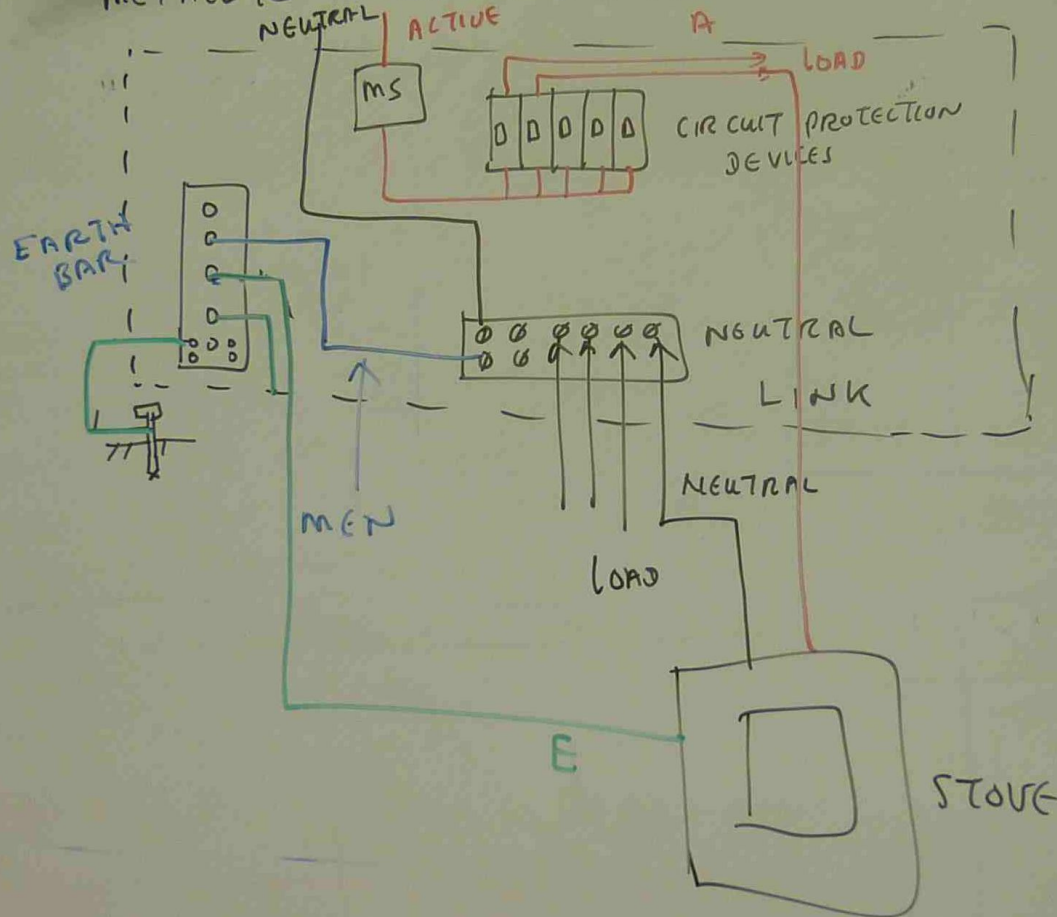 NEUTRAL
ACTIVE
A
LOAD
MS
CIRCUIT PROTECTION
DEVICES
EARTH
BAR
NEUTRAL
LINK
MEN
NEUTRAL
LOAD
E
STOVE